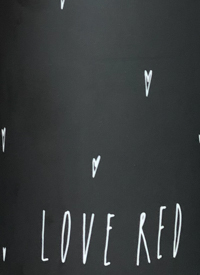 LOVE RED